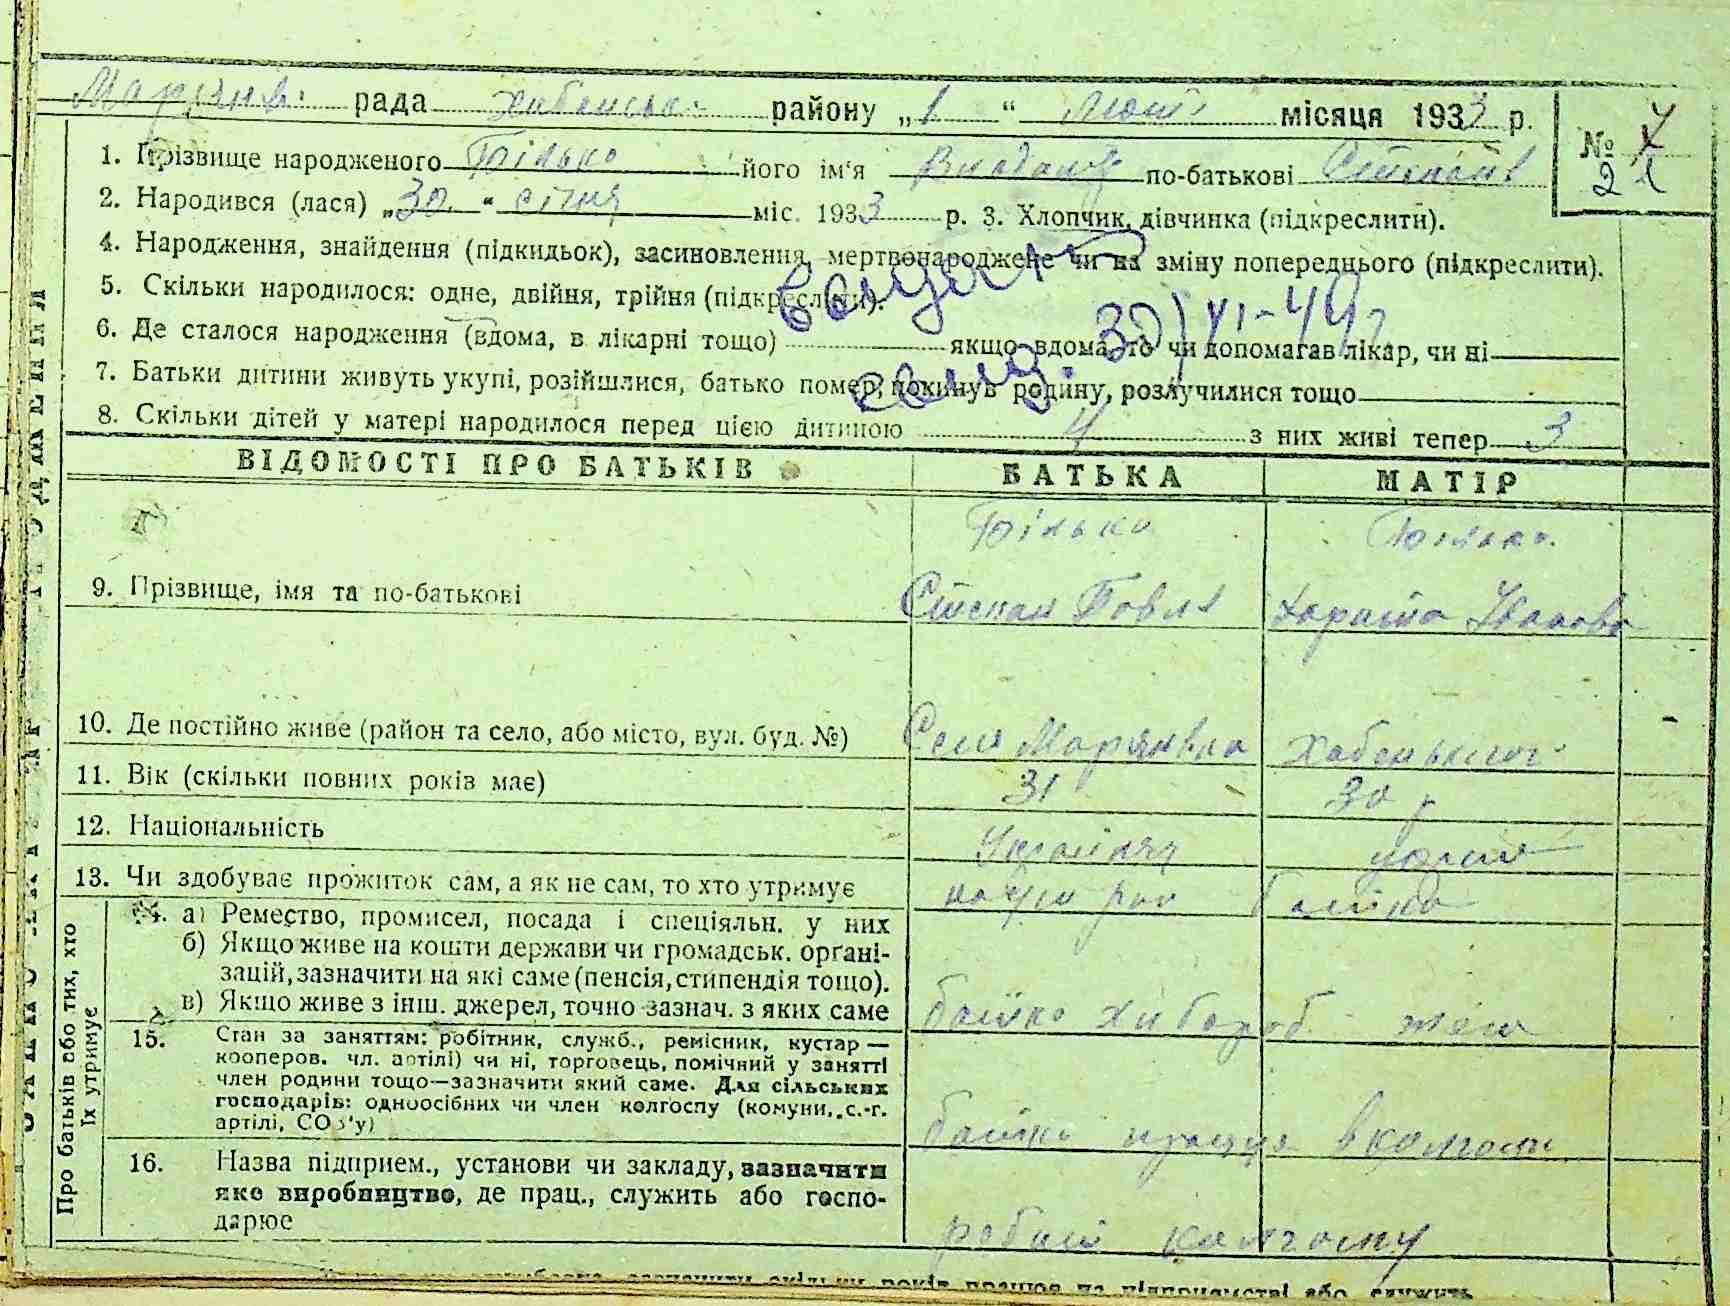 Марянів. рада Хабенськ. району „1“ Лют. місяця 1933 р.
№ 7
2
1. Прізвище народженого Білько його ім'я по-батькові Степан
2. Народився (лася) „30“ січня міс. 1933 р. 3. Хлопчик, дівчинка (підкреслити).
4. Народження, знайдення (підкидьок), засиновлення, мертвонароджене чи на зміну попереднього (підкреслити).
5. Скільки народилося: одне, двійня, трійня (підкреслити).
6. Де сталося народження (вдома, в лікарні тощо) якщо вдома, то чи допомагав лікар, чи ні
30/XI-49р
7. Батьки дитини живуть укупі, розійшлися, батько помер, покинув родину, розлучилися тощо
8. Скільки дітей у матері народилося перед цією дитиною 4 з них живі тепер 3
ВІДОМОСТІ ПРО БАТЬКІВ БАТЬКА МАТІР
Білько Білько
9. Прізвище, імя та по-батькові Степан Павл Іванова
10. Де постійно живе (район та село, або місто, вул. буд. №) Село Марянвка Хабенького
11. Вік (скільки повних років має) 31 30 р
12. Національність Україняц
13. Чи здобуває прожиток сам, а як не сам, то хто утримує батько
14. а) Ремество, промисел, посада і спеціяльн. у них
б) Якщо живе на кошти держави чи громадськ. органі-
зацій, зазначити на які саме (пенсія, стипендія тощо).
в) Якщо живе з інш. джерел, точно зазнач. з яких саме батько хлібороб
15. Стан за заняттям: робітник, служб., ремісник, кустар —
кооперов. чл. артілі) чи ні, торговець, помічний у занятті
член родини тощо—зазначити який саме. Для сільських
господарів: одноосібних чи член колгоспу (комуни, с.-г.
артілі, СОЗ'у) батько працує в колгоспі
16. Назва підприєм., установи чи закладу, зазначити
яке виробництво, де прац., служить або госпо-
дарює робит колгоспу
Про батьків або тих, хто
їх утримує